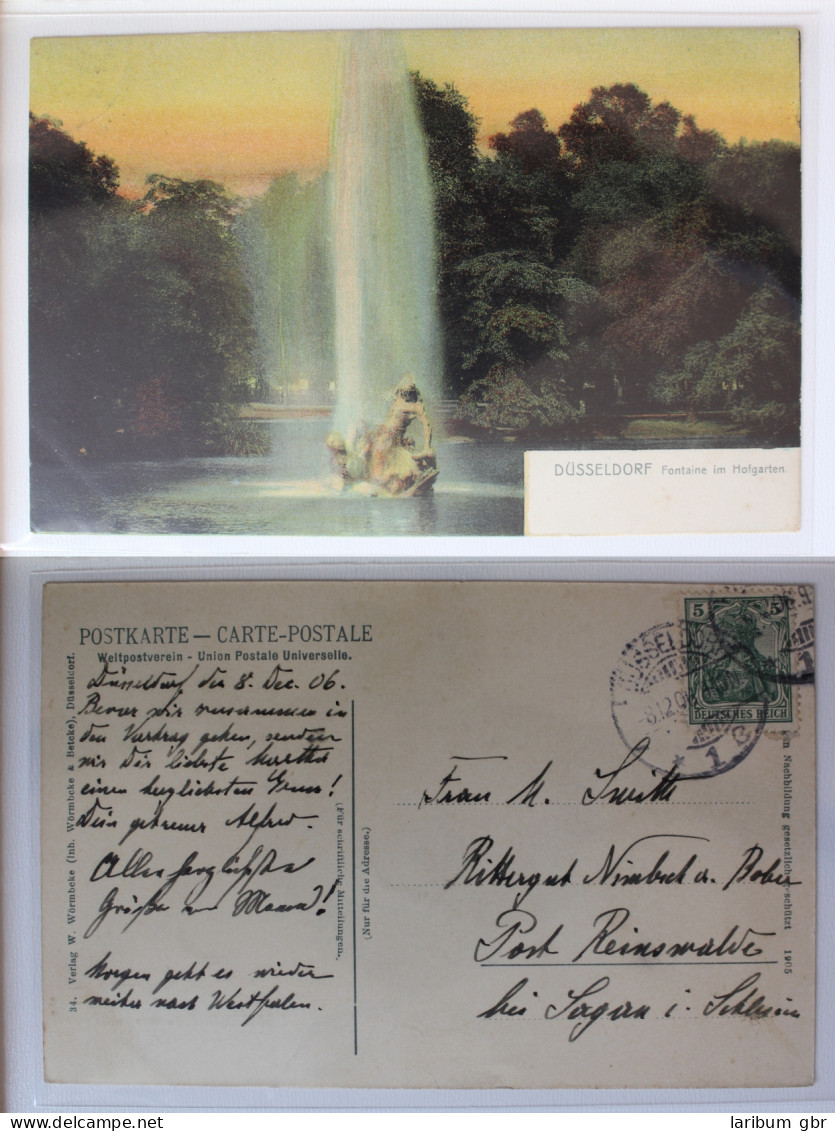 DÜSSELDORF Fontaine im Hofgarten.
POSTKARTE — CARTE-POSTALE
Weltpostverein - Union Postale Universelle.
Düsseldorf den 8. Dec. 06.
Bevor wir zusammen in
den Vortrag gehen, senden
wir Dir liebste Martha
einen herzlichsten Gruss!
Dein getreuer Alfred.
Allerherzlichste
Grüße von Mama!
Morgen geht es wieder
weiter nach Westfalen.
34. Verlag W. Wörmbcke (Inh. Wörmbcke & Betcke), Düsseldorf.
(Für schriftliche Mitteilungen.)
(Nur für die Adresse.)
Frau M. Smith
Rittergut Nimbsch a. Bober
Post Reinswalde
bei Sagan i. Schlesien
5 5
DEUTSCHES REICH
DÜSSELDORF
8.12.06
* 1
Nachbildung gesetzlich geschützt 1905
laribum gbr